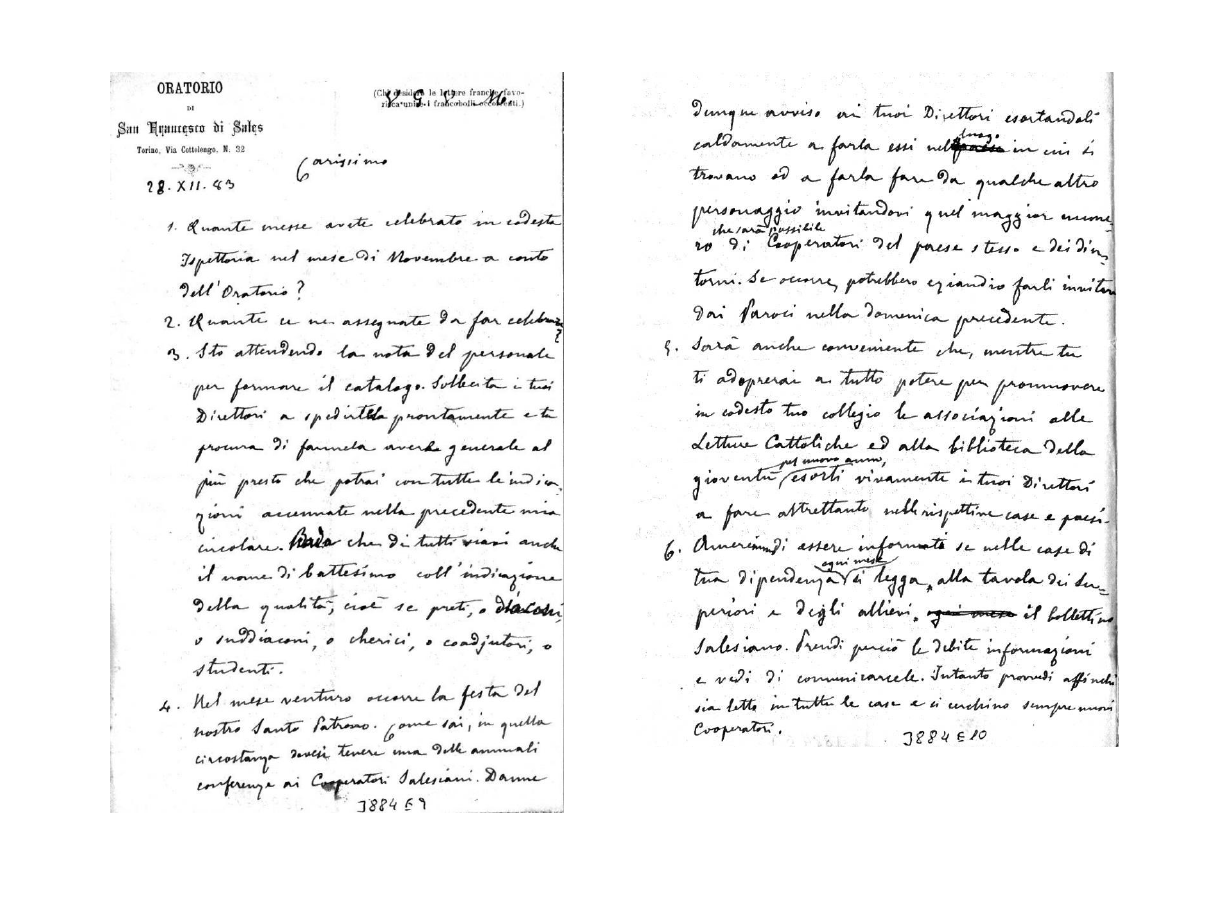 ORATORIO
DI
San Francesco di Sales
Torino, Via Cottolengo, N. 32
(Chi desidera le lettere franche favo-
risca unire i francobolli occorrenti.)
28. XII. 83
Carissimo
1. Quante messe avete celebrato in codesta
Ispettoria nel mese di Novembre a conto
dell'Oratorio?
2. Quante ce ne assegnate da far celebrare?
3. Sto attendendo la nota del personale
per formare il catalogo. Sollecita i tuoi
Direttori a spedirtela prontamente e tu
procura di farmela avere generale al
più presto che potrai con tutte le indica-
zioni accennate nella precedente mia
circolare. Bada che di tutti siavi anche
il nome di battesimo coll'indicazione
della qualità, cioè se preti, o diaconi,
o suddiaconi, o cherici, o coadjutori, o
studenti.
4. Nel mese venturo occorre la festa del
nostro Santo Patrono. Come sai, in quella
circostanza devesi tenere una delle annuali
conferenze ai Cooperatori Salesiani. Danne
3884 E 9
dunque avviso ai tuoi Direttori esortandoli
caldamente a farla essi nel luogo in cui si
trovano od a farla fare da qualche altro
personaggio invitandovi quel maggior nume-
che sarà possibile
ro di Cooperatori del paese stesso e dei din-
torni. Se occorre, potrebbero eziandio farli invitare
dai Paroci nella domenica precedente.
5. Sarà anche conveniente che, mentre tu
ti adoprerai a tutto potere per promuovere
in codesto tuo collegio le associazioni alle
Letture Cattoliche ed alla biblioteca della
pel nuovo anno,
gioventù esorti vivamente i tuoi Direttori
a fare altrettanto nelle rispettive case e paesi.
6. Amerei di essere informato se nelle case di
ogni mese
tua dipendenza si legga, alla tavola dei Su-
periori e degli allievi, ogni mese il bollettino
Salesiano. Prendi perciò le debite informazioni
e vedi di comunicarcele. Intanto provvedi affinché
sia letto in tutte le case e si cerchino sempre nuovi
Cooperatori.
3884 E 10